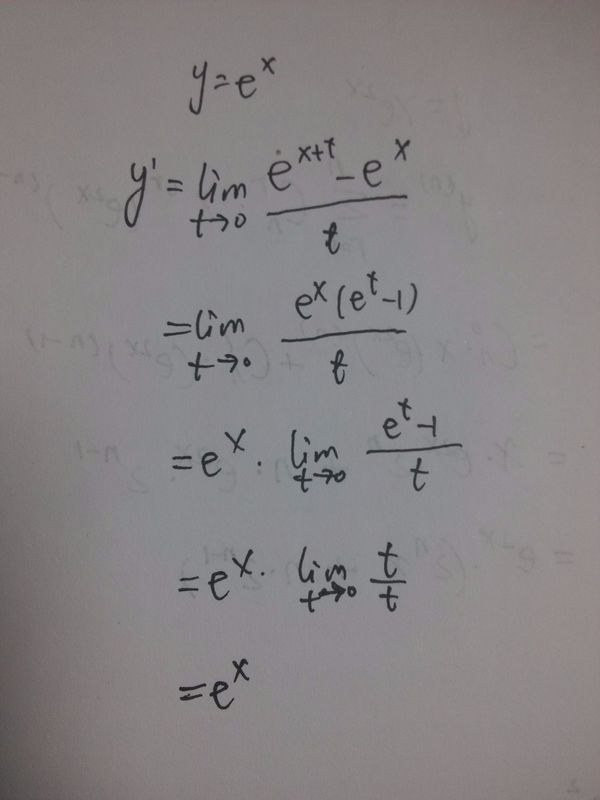 y=e^x
y'=lim t→0 (e^(x+t)-e^x)/t
=lim t→0 (e^x(e^t-1))/t
=e^x· lim t→0 (e^t-1)/t
=e^x· lim t→0 t/t
=e^x